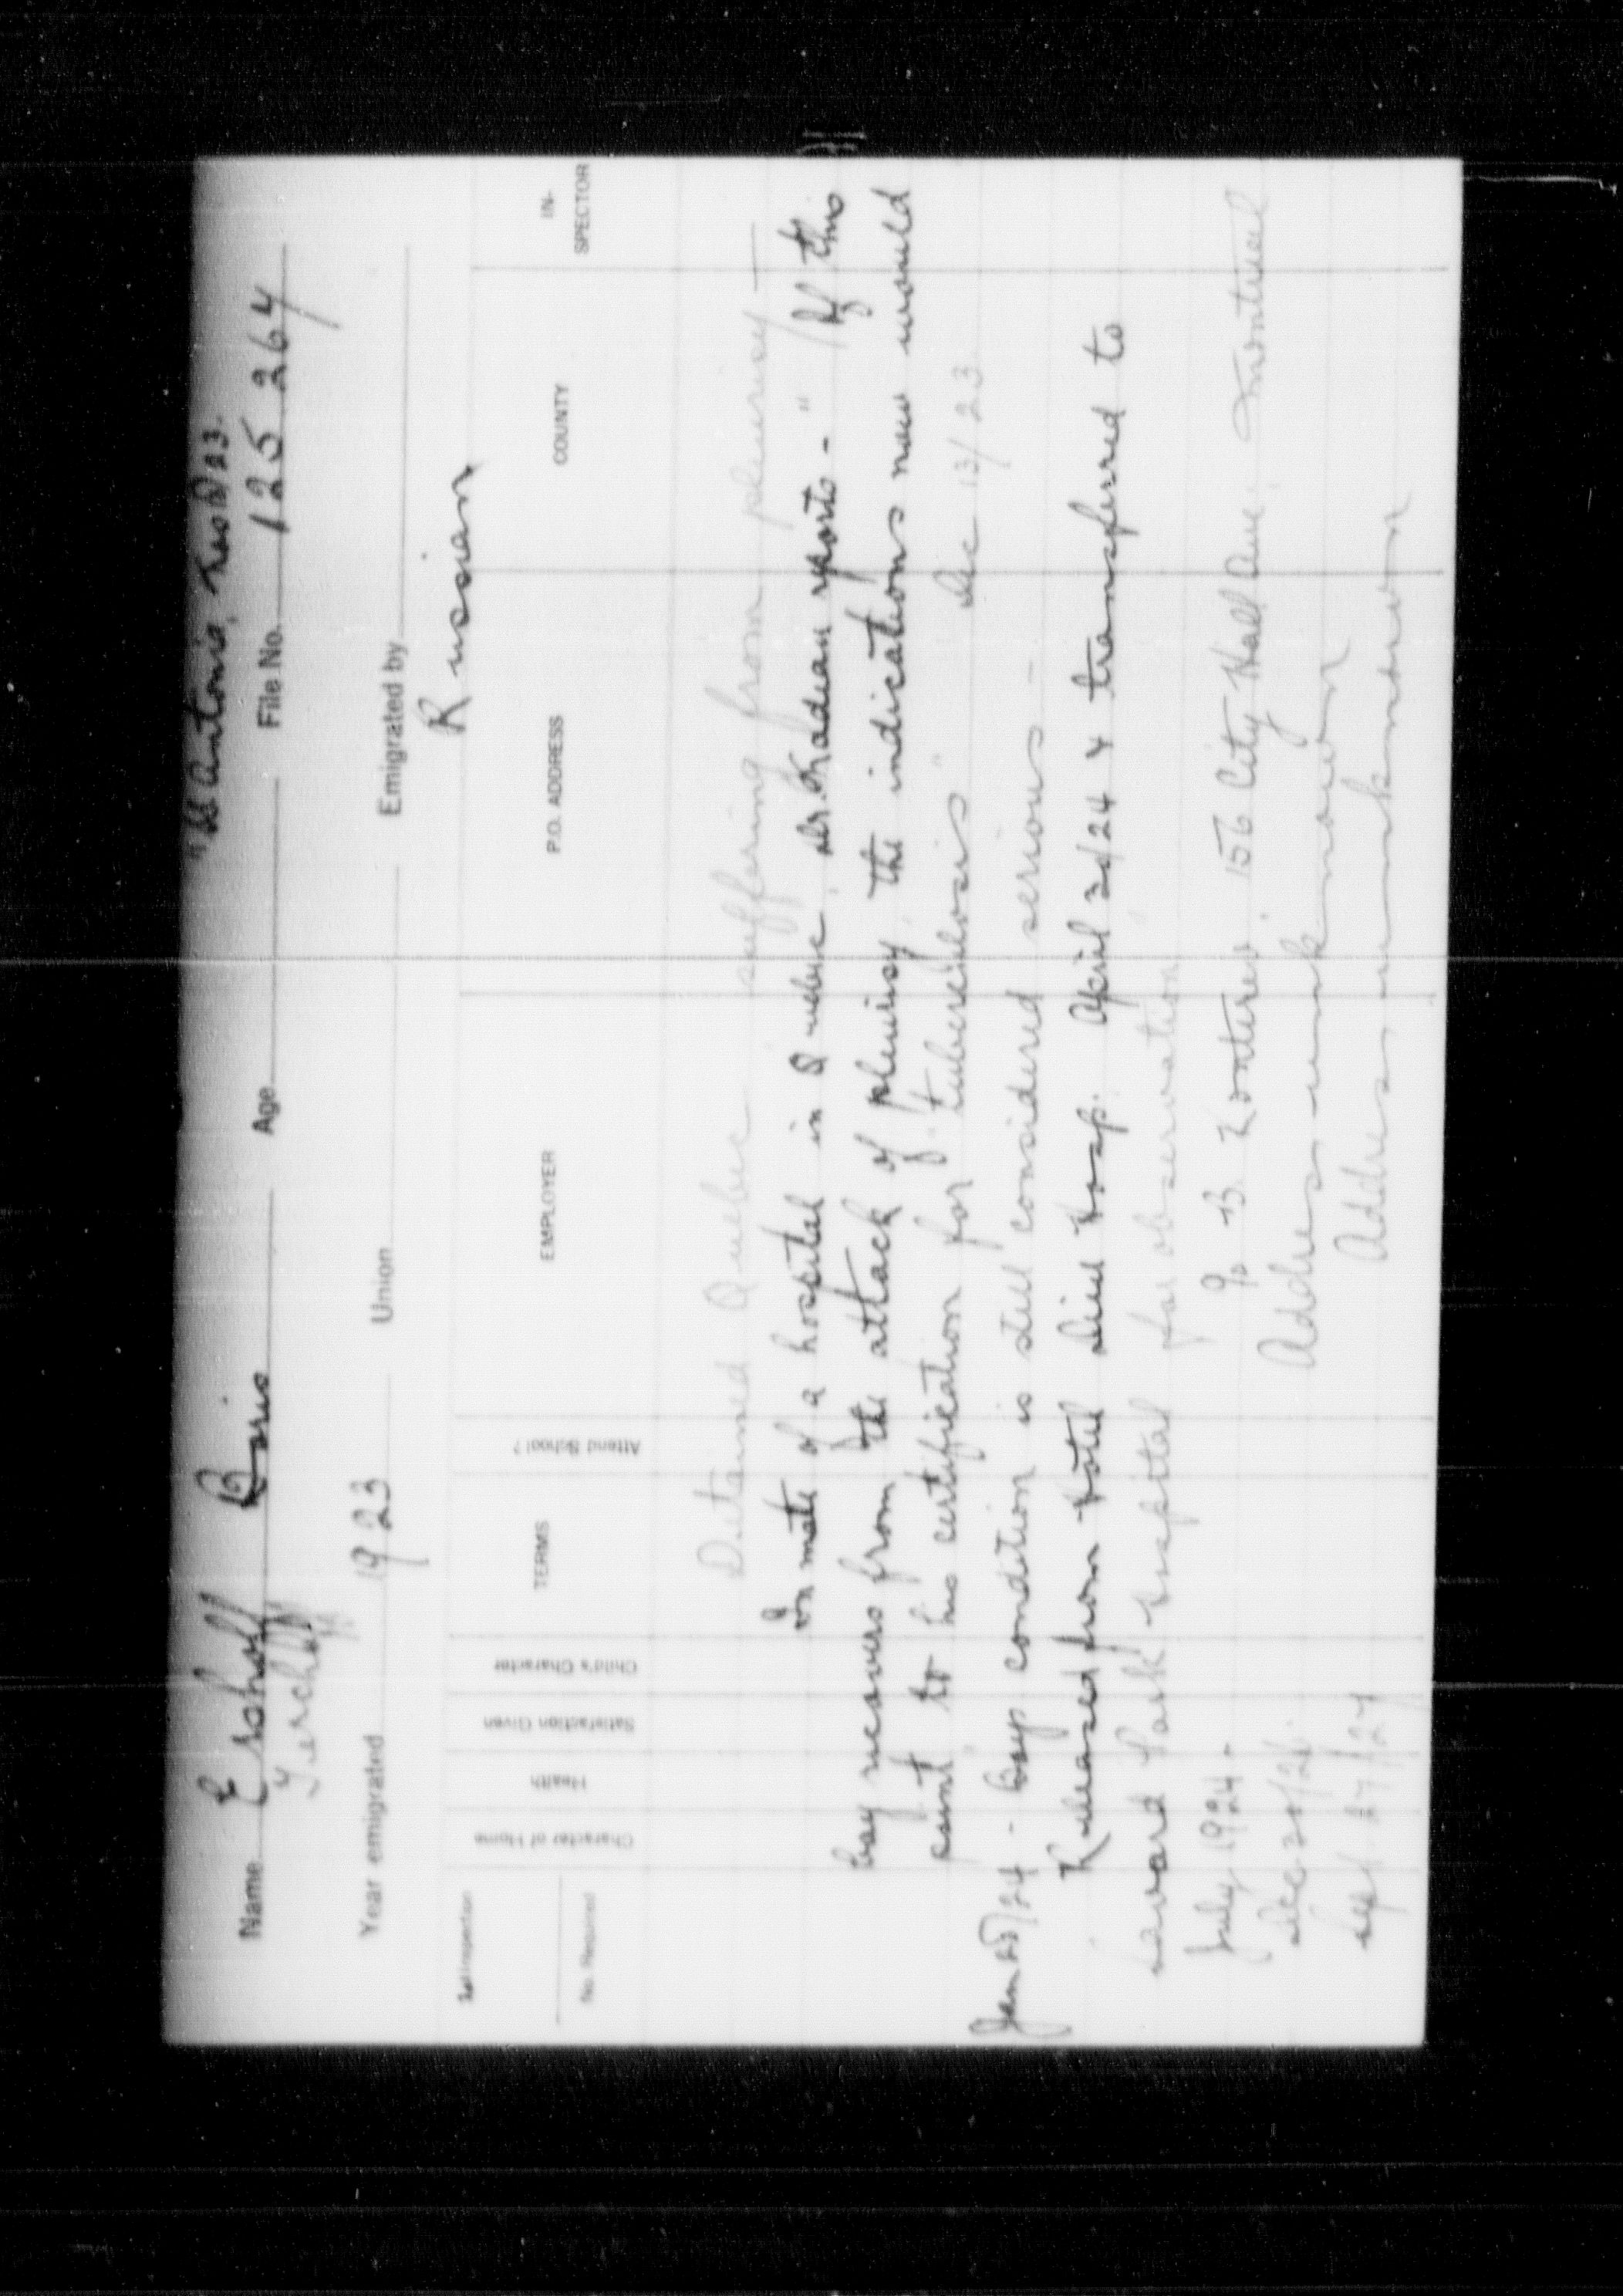 "SS Antonia, Nov 23.
Name Ershoff Boris Age File No. 125 264
Yerchoff
Year emigrated 1923 Union Emigrated by
Russian
1st Inspection
No. Required
Character of Home
Health
Satisfaction Given
Child's Character
TERMS
Attend School?
EMPLOYER
P.O. ADDRESS
COUNTY
IN-
SPECTOR
Detained Quebec suffering from pleurisy —
Inmate of a hospital in Quebec, Dr. reports - " If this
boy recovers from the attack of pleurisy, the indications now would
point to his certification for tuberculosis" Dec 13/23
Jan 25/24 - Boys condition is still considered serious -
Released from Hotel Dieu Hosp. April 3d/24 & transferred to
Savard Park Hospital for observation
July 1924 - % B. 156 City Hall Ave, Montreal
Dec 30/26. Address unknown
Sept 27/27 Address unknown